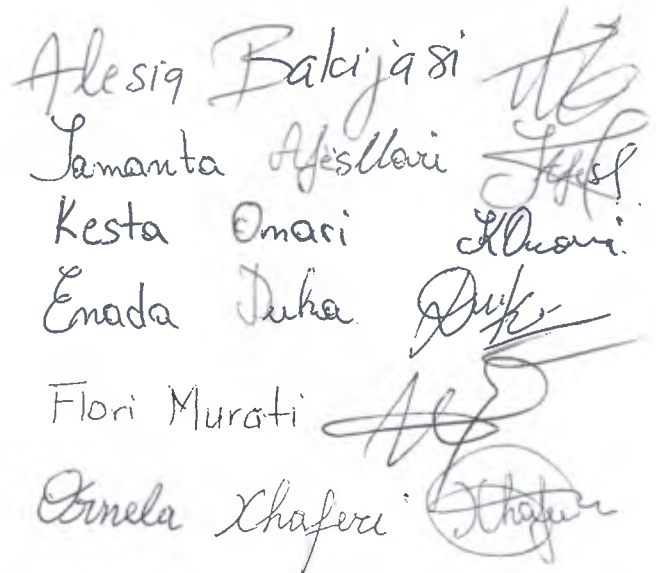 Alesia Bakijasi
Jamanta Afësllari
Kesta Omari KOmari.
Enada Duka Duka
Flori Murati
Ornela Xhaferi Xhaferi